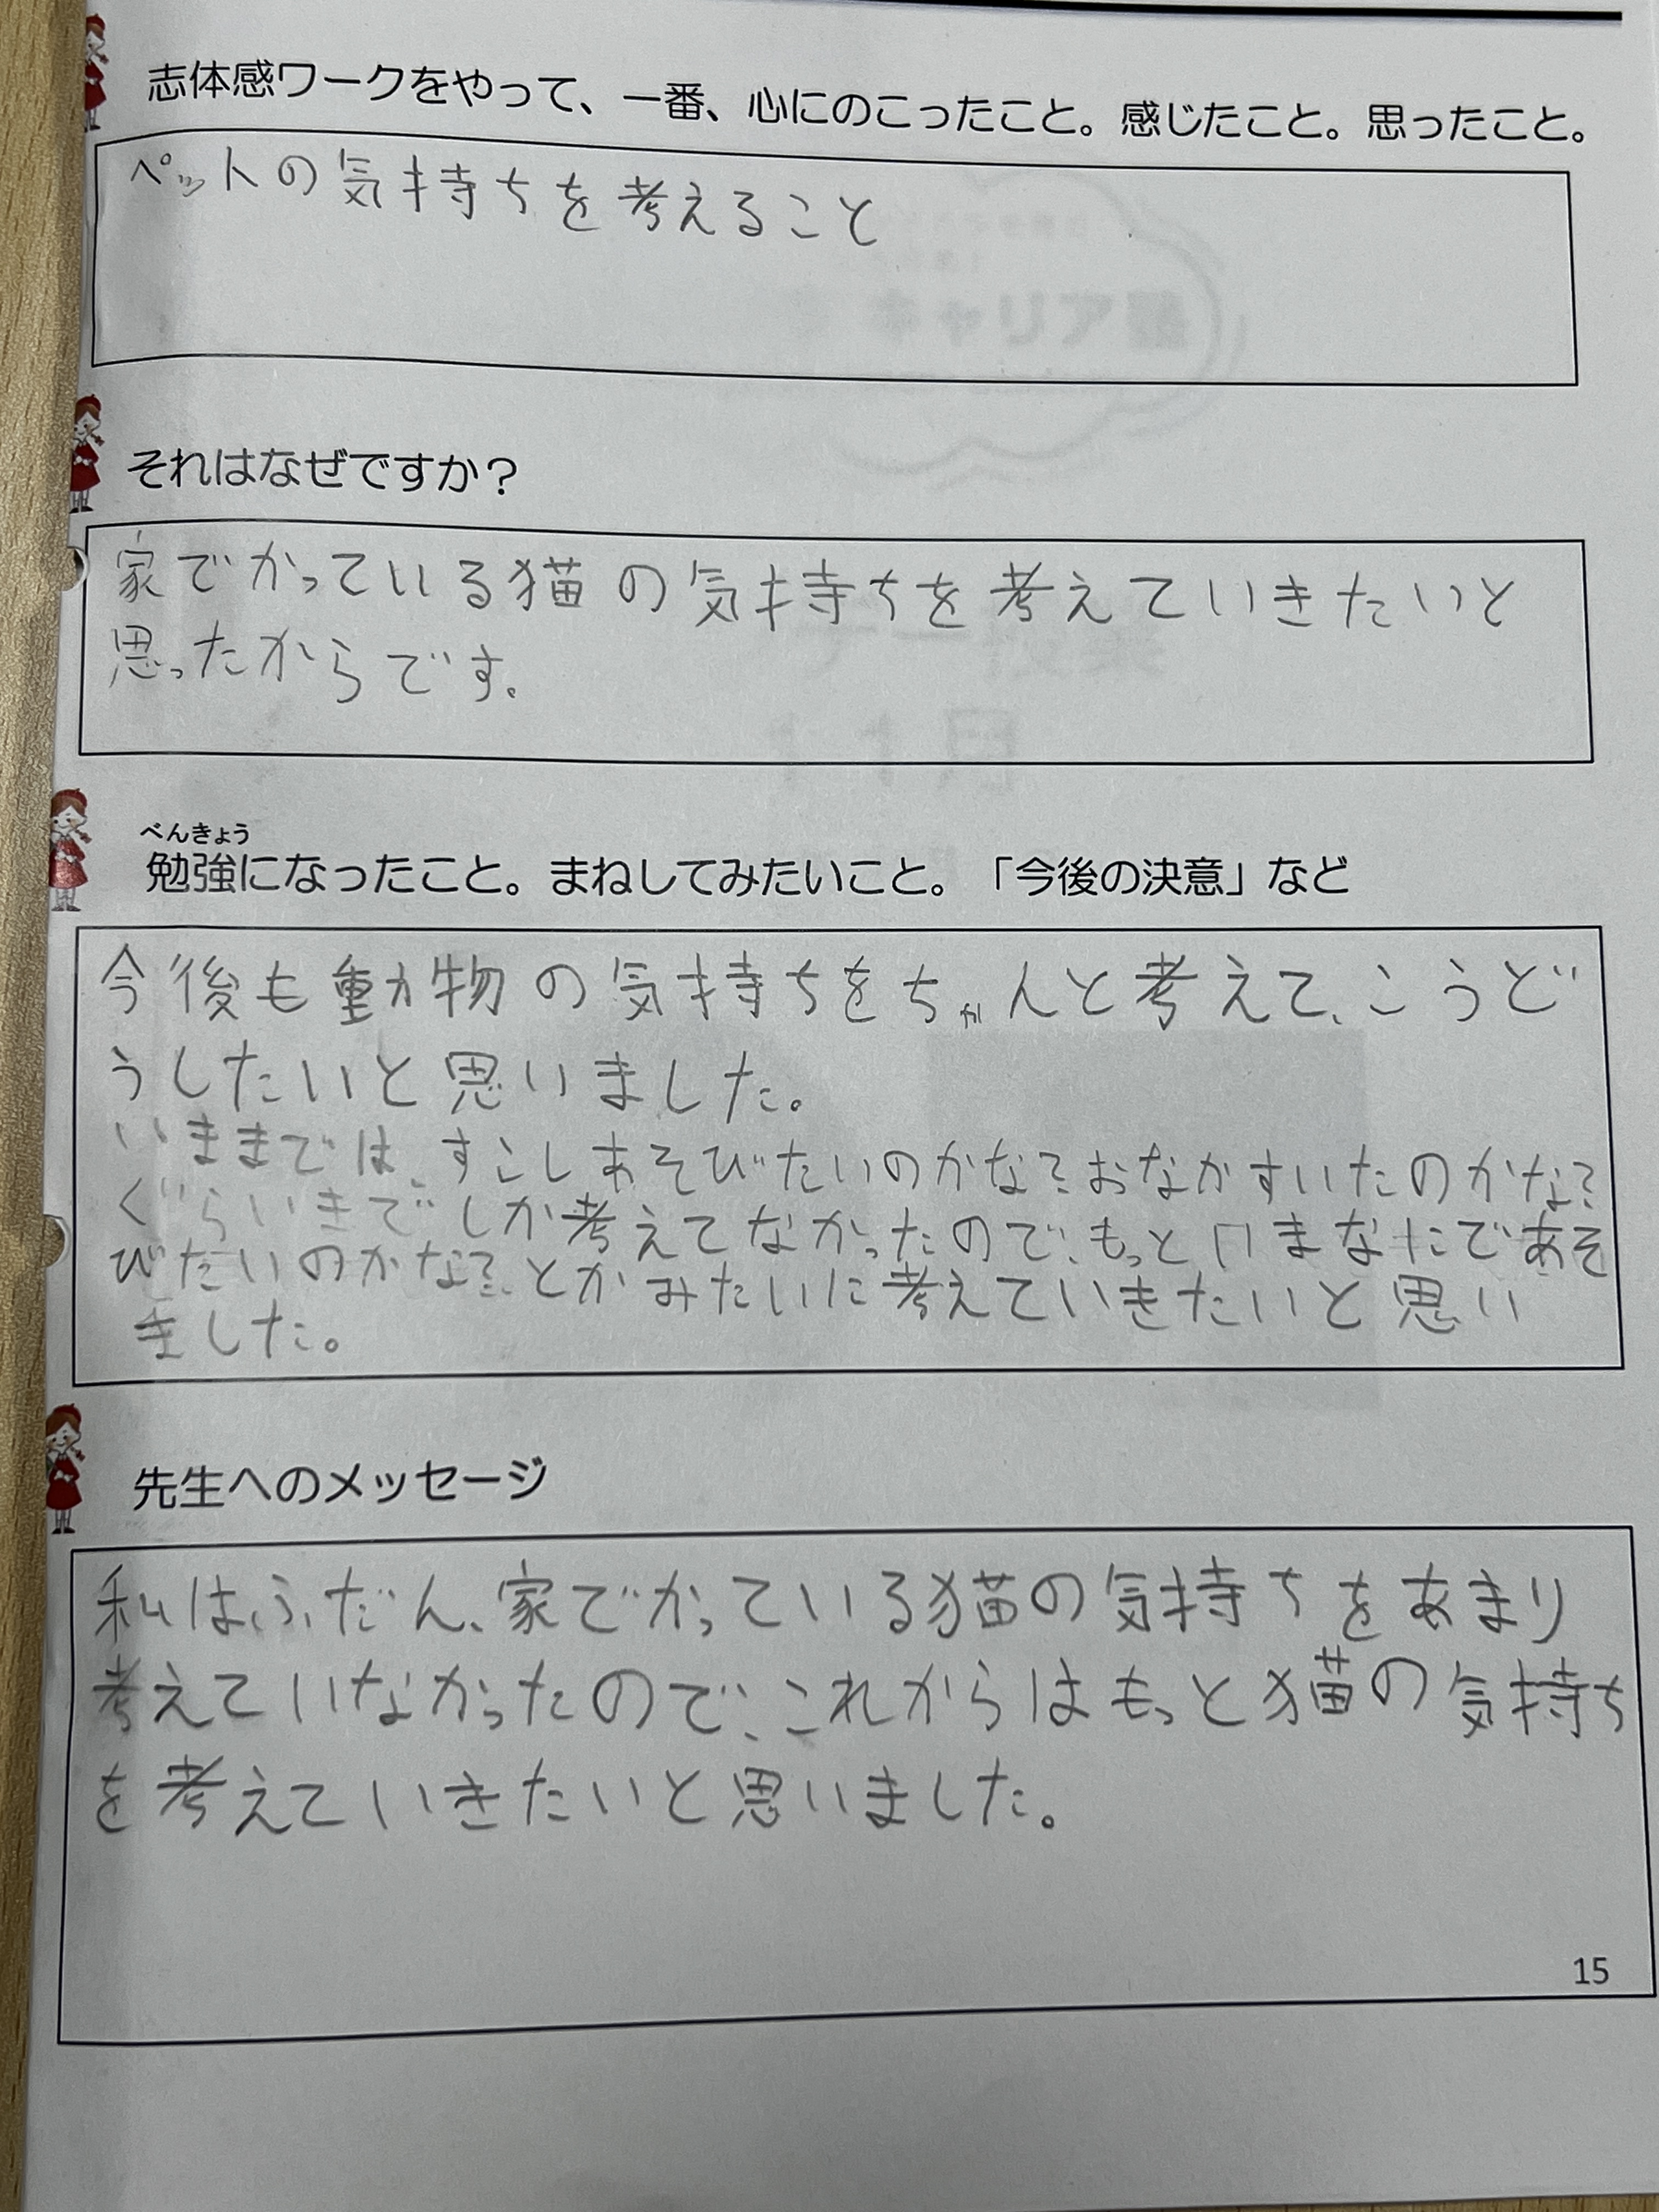 志体感ワークをやって、一番、心にのこったこと。感じたこと。思ったこと。
ペットの気持ちを考えること
それはなぜですか？
家でかっている猫の気持ちを考えていきたいと
思ったからです。
べんきょう
勉強になったこと。まねしてみたいこと。「今後の決意」など
今後も動物の気持ちをちゃんと考えて、こうど
うしたいと思いました。
いままでは、すこしあそびたいのかな？おなかすいたのかな？
ぐらいまでしか考えてなかったので、もっといまなにであそ
びたいのかな？とかみたいに考えていきたいと思い
ました。
先生へのメッセージ
私は、ふだん、家でかっている猫の気持ちをあまり
考えていなかったので、これからはもっと猫の気持ち
を考えていきたいと思いました。
15